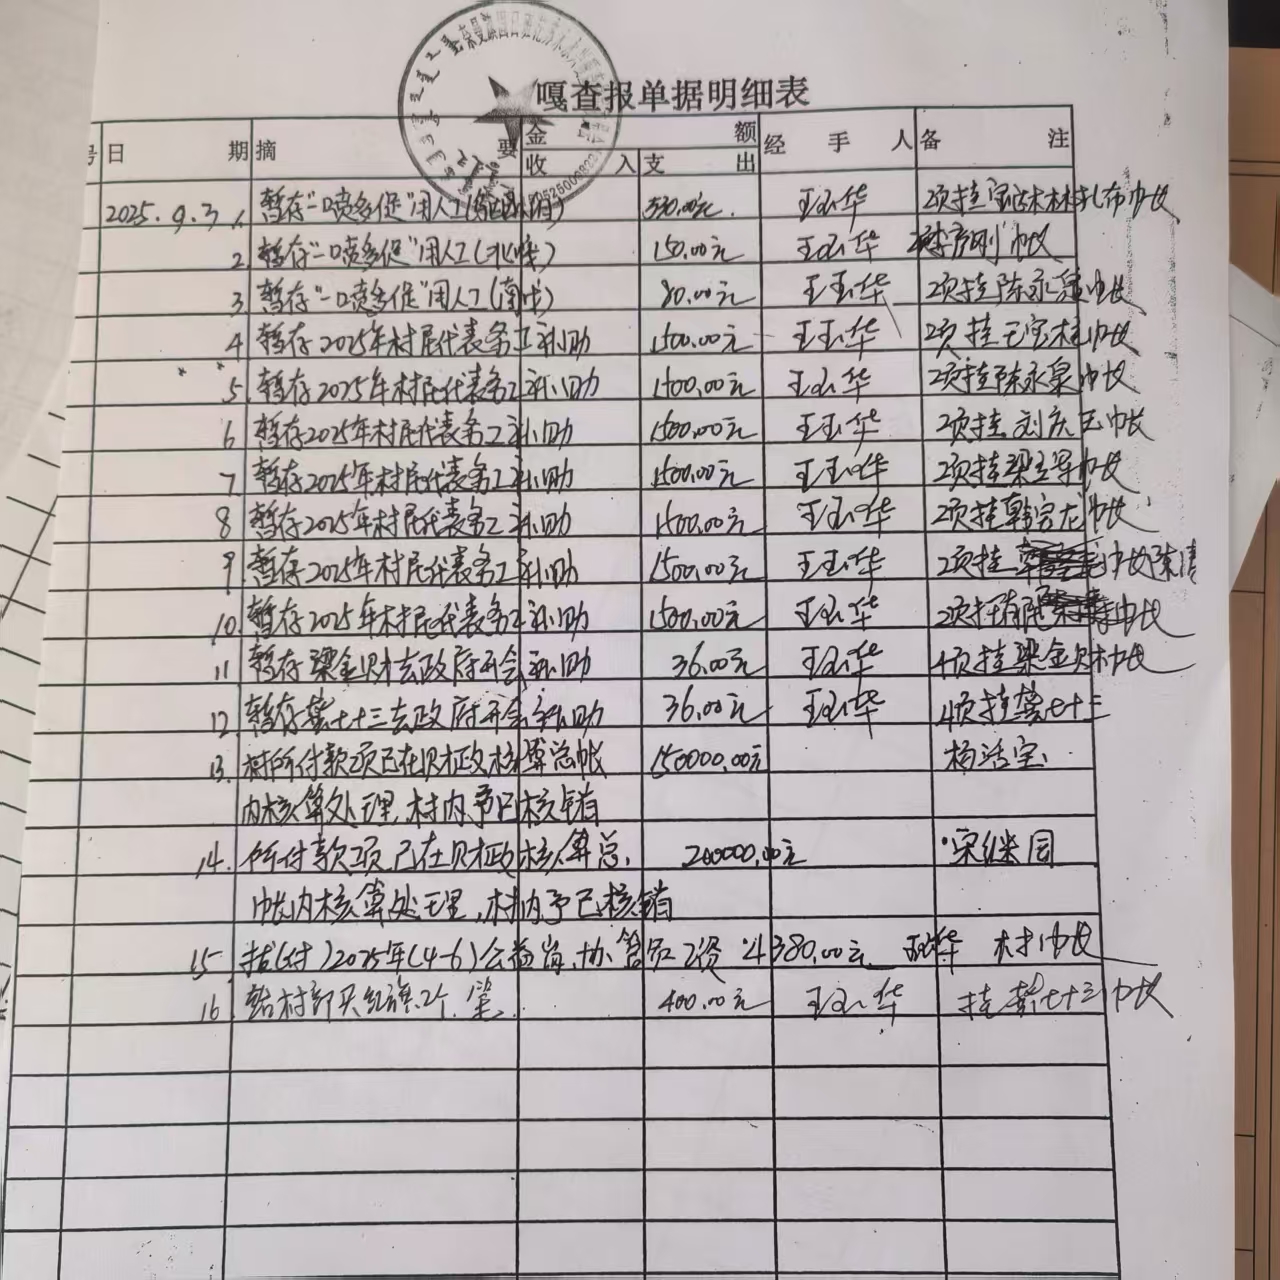 嘎查报单据明细表
号 日期 摘要 金额 经手人 备注
收入 支出
2025.9.3 1 暂存"一喷多促"用人工( 330.00元. 王玉华 2项挂 布帐
2 暂存"一喷多促"用人工( 150.00元 王玉华 刚帐
3 暂存"一喷多促"用人工( 80.00元 王玉华 2项挂陈永 帐
4 暂存2025年村民代表务工补助 1500.00元 王玉华 2项挂王宝柱帐
5 暂存2025年村民代表务工补助 1500.00元 王玉华 2项挂陈永泉帐
6 暂存2025年村民代表务工补助 1500.00元 王玉华 2项挂刘庆 帐
7 暂存2025年村民代表务工补助 1500.00元 王玉华 2项挂梁 帐
8 暂存2025年村民代表务工补助 1500.00元 王玉华 2项挂韩宝龙帐
9 暂存2025年村民代表务工补助 1500.00元 王玉华 2项挂 帐陈
10 暂存2025年村民代表务工补助 1500.00元 王玉华 2项 帐
11 暂存梁金财去政府开会补助 36.00元 王玉华 4项挂梁金财帐
12 暂存 七十三去政府开会补助 36.00元 王玉华 4项挂 七十三
13. 村所付款项已在财政核算总帐 150000.00元 杨 宝
内核算处理,村内予已核销
14. 所付款项已在财政核算总 200000.00元 宋继园
帐内核算处理,村内予已核销
15 拨(付)2025年(4-6)公益岗、协管员工资 4380.00元 王玉华 村帐
16 给村部买红旗2个 400.00元 王玉华 挂 七十三帐